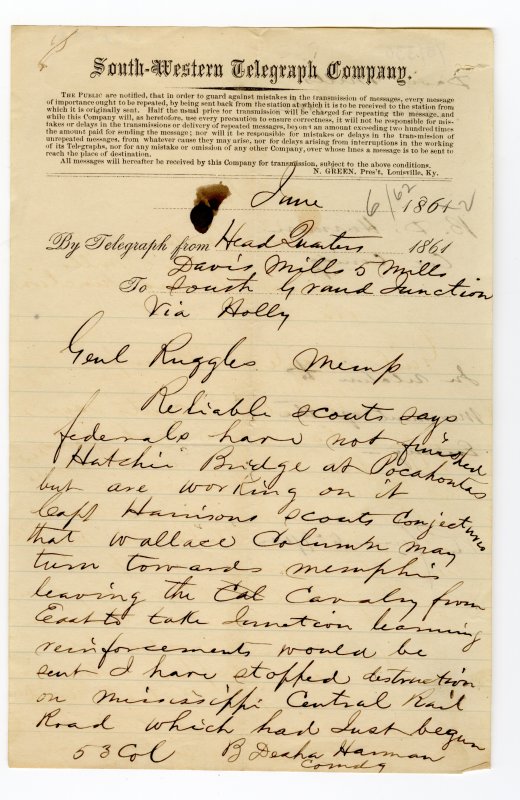 South-Western Telegraph Company.
THE PUBLIC are notified, that in order to guard against mistakes in the transmission of messages, every message
of importance ought to be repeated, by being sent back from the station at which it is to be received to the station from
which it is originally sent. Half the usual price for transmission will be charged for repeating the message, and
while this Company will, as heretofore, use every precaution to ensure correctness, it will not be responsible for mis-
takes or delays in the transmission or delivery of repeated messages, beyond an amount exceeding two hundred times
the amount paid for sending the message; nor will it be responsible for mistakes or delays in the transmission of
unrepeated messages, from whatever cause they may arise, nor for delays arising from interruptions in the working
of its Telegraphs, nor for any mistake or omission of any other Company, over whose lines a message is to be sent to
reach the place of destination.
All messages will hereafter be received by this Company for transmission, subject to the above conditions.
N. GREEN, Pres't, Louisville, Ky.
June 6/62 1861 2
By Telegraph from Head Quarters 1861
Davis Mills 5 Mills
To South Grand Junction
Via Holly
Genl Ruggles Memp
Reliable scouts says
federals have not finished
Hatchii Bridge at Pocahontas
but are working on it
Capt Harrisons scouts Conjectures
that Wallace Column may
turn towards memphis
leaving the Cal Cavalry from
East to take Junction learning
reinforcements would be
sent I have stopped destruction
on Mississippi Central Rail
Road which had Just begun
53 Col B Desha Harman
Comdg